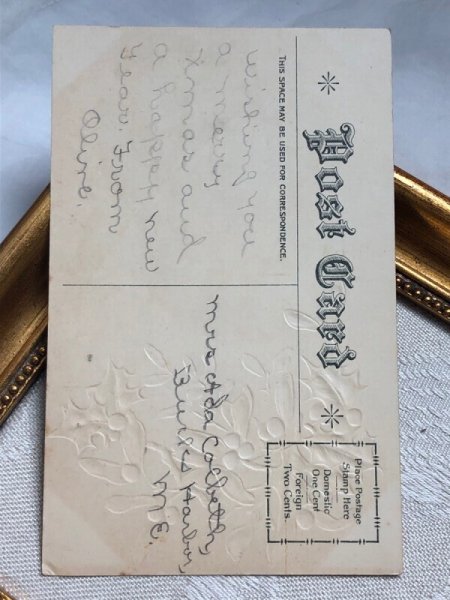 Post Card
THIS SPACE MAY BE USED FOR CORRESPONDENCE.
Place Postage
Stamp Here
Domestic
One Cent
Foreign
Two Cents.
wishing you
a merry
xmas and
a happy new
Year. From
Olive.
mrs Ada Corbett,
Bucks Harbor,
M E.